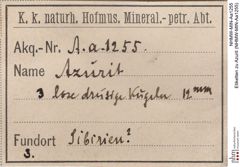 K. k. naturh. Hofmus. Mineral.-petr. Abt.
Akq.-Nr. A.a.1255.
Name Azurit
3 lose drusige Kugeln 12 mm
Fundort Sibirien?
3.
NHMW-MIN-Aa1255
Etiketten zu Azurit (NHMW-MIN-Aa1255)